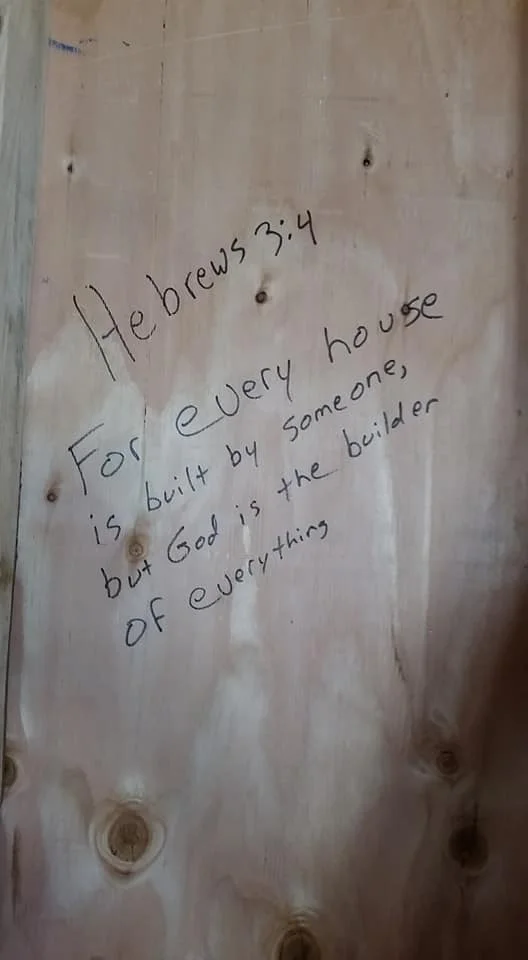 Hebrews 3:4
For every house
is built by someone,
but God is the builder
of everything